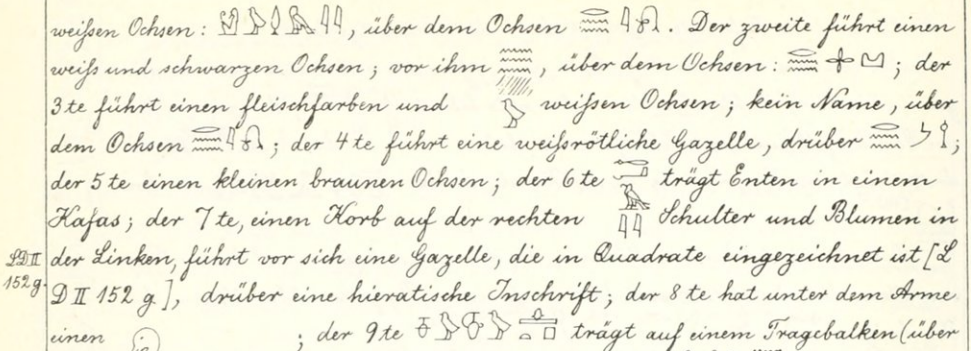 weißen Ochsen: , über dem Ochsen . Der zweite führt einen
weiß und schwarzen Ochsen; vor ihm , über dem Ochsen: ; der
3te führt einen fleischfarben und weißen Ochsen; kein Name, über
dem Ochsen ; der 4te führt eine weißrötliche Gazelle, drüber ;
der 5te einen kleinen braunen Ochsen; der 6te trägt Enten in einem
Kafas; der 7te, einen Korb auf der rechten Schulter und Blumen in
LD II der Linken, führt vor sich eine Gazelle, die in Quadrate eingezeichnet ist [L
152 g. D II 152 g], drüber eine hieratische Inschrift; der 8te hat unter dem Arme
einen ; der 9te trägt auf einem Tragebalken (über